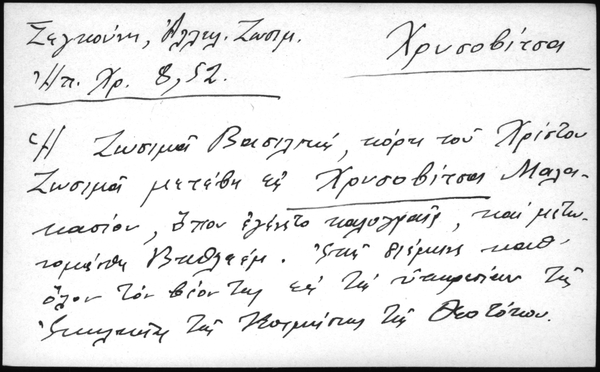 Σεγκούνη, Ἀλληλ. Ζωσιμ. Χρυσοβίτσα
Ἠπ. Χρ. 8, 52.
Ἡ Ζωσιμᾶ Βασιλική, κόρη τοῦ Χρίστου
Ζωσιμᾶ μετέβη εἰς Χρυσοβίτσα Μαλα-
κασίου, ὅπου ἐγένετο καλογραῖα, καὶ μετω-
νομάσθη Βηθλεέμ. Ἐκεῖ διέμεινε καθ'
ὅλον τὸν βίον της εἰς τὴν ὑπηρεσίαν τῆς
Ἐκκλησίας τῆς Κοιμήσεως τῆς Θεοτόκου.